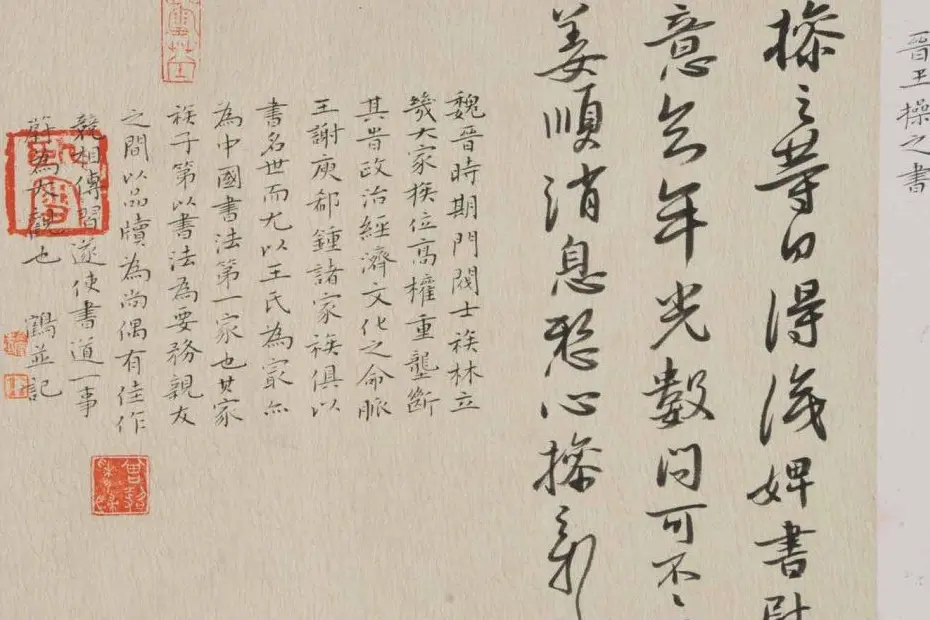 晉王操之書
操之等白得識婢書
意去年光數問可不
姜順消息愁心操之
魏晉時期門閥士族林立
幾大家族位高權重壟斷
其旹政治經濟文化之命脈
王謝庾郗鍾諸家族俱以
書名世而尤以王氏為最亦
為中國書法第一家也其家
族子第以書法為要務親友
之間以品牘為尚偶有佳作
競相傳習遂使書道一事
蔚為大觀也 鶴並記